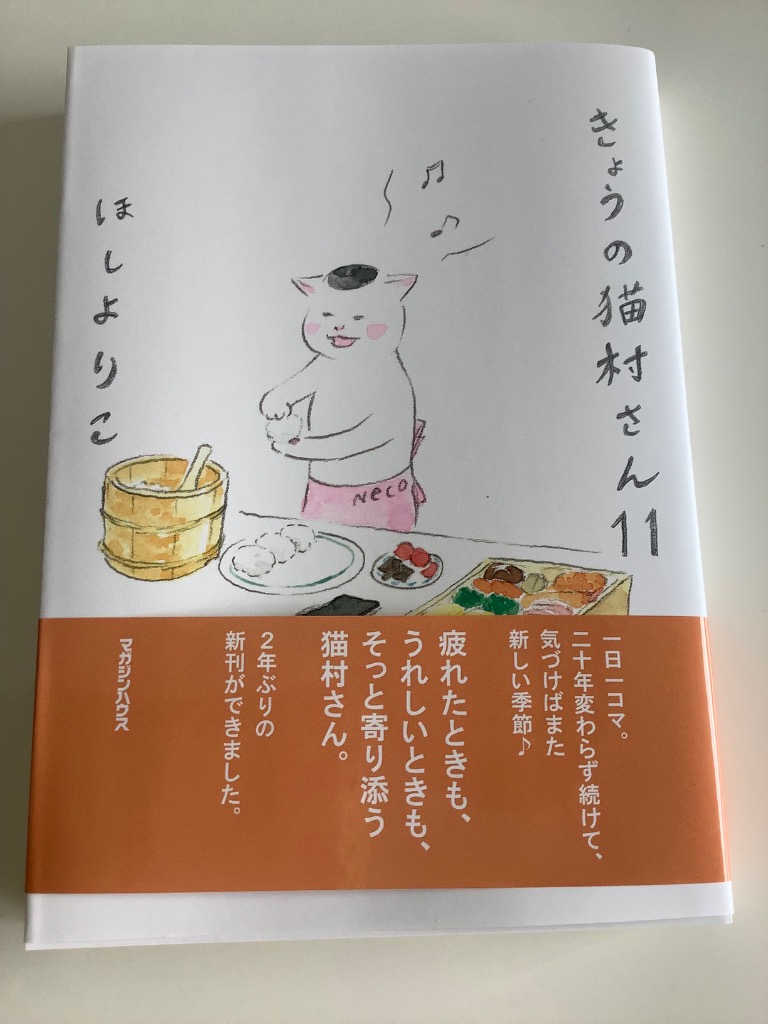 きょうの猫村さん11
ほしよりこ
Neco
一日一コマ。
二十年変わらず続けて、
気づけばまた
新しい季節♪
疲れたときも、
うれしいときも、
そっと寄り添う
猫村さん。
2年ぶりの
新刊ができました。
マガジンハウス